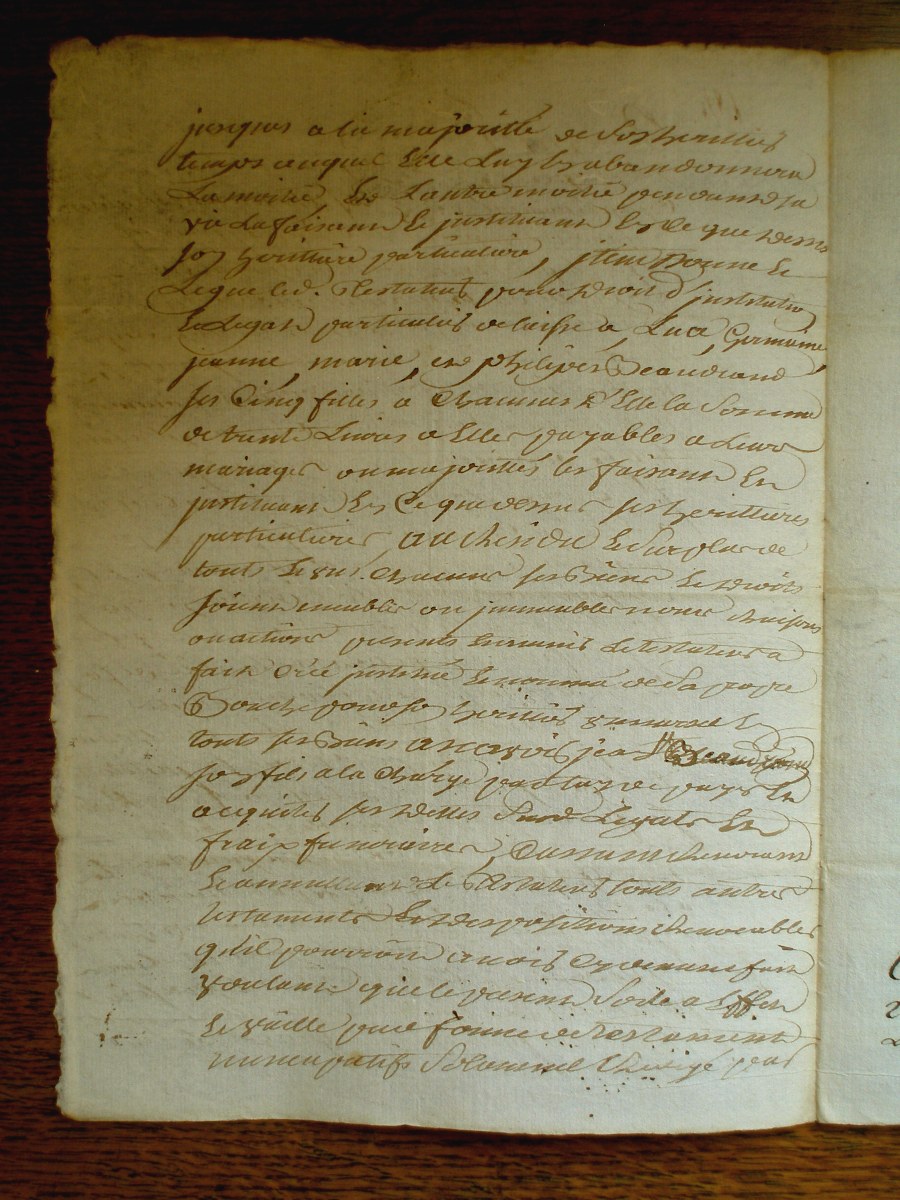 jusques a la majoritté de son heritier
temps auquel Elle luy habandonnera
La moitié, Et L'autre moitié pendant sa
vie La faisant Et justituant En ce que dessus
son heritiere particuliere, Item Donne Et
Legue led. Testateur pour droit d'justitution
Et Legat particulier delaisse a Luce, Germaine,
jeanne, marie, et philipes Beaudrand
ses Cinq filles a Chacunes d'Elle la Somme
de trente Livres a Elles payables a Leurs
mariages ou majorittés les faisant Et
justituant En Ce que dessus ses heritieres
particulieres, au Residu Et Surplus de
touts Et uns Chacuns ses Biens Et droits
soient meubles ou jmmeubles noms Raisons
ou actions presents Et advenir Le testateur a
fait Créé justitué Et nommé de Sa propre
Bouche pour son heritier universel En
touts ses Biens a scavoir jean Beaudrand
son fils a la Charge par luy de payer Et
acquitter ses dettes Legats Et
fraix funeraires, Cassant Revocant
Et annullant Le Testateur touts autres
testaments Et dispositions Revocables
qu'il pourroit avoir Cy devant fait
voulant que le present Sorte a Effet
Et vaille par forme de Testament
nuncupatif Solemnel Redigé par